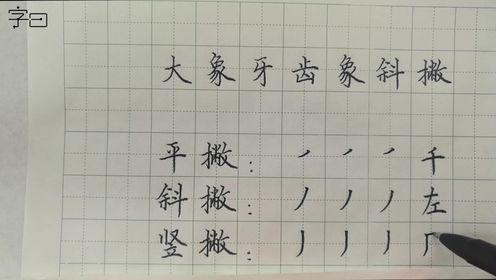 字曰
大象牙齿象斜撇
平撇：㇒ ㇒ ㇒ 千
斜撇：丿 丿 丿 左
竖撇：丿 丿 丿 厂